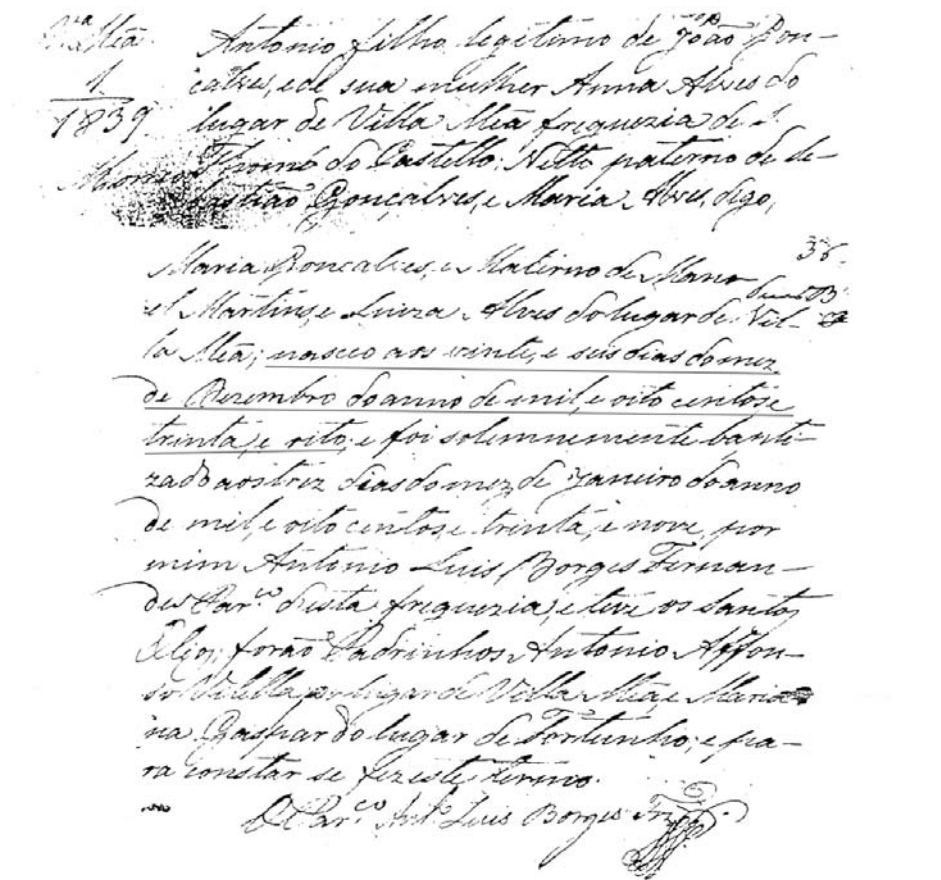 V.ª Meã
1
1839
Antonio filho legitimo de João Gon-
calves, e de sua mulher Anna Alves do
lugar de Villa Meã freguezia de S.
Thomé do Castello; Netto paterno de Se-
bastião Gonçalves, e Maria Alves, digo,
36
Maria Goncalves, e Materno de Mano-
el Martins, e Luiza Alves do lugar de Vil-
la Meã; nasceo aos vinte, e seis dias do mez
de Dezembro do anno de mil, e oito centos, e
trinta, e oito, e foi solemnemente bauti-
zado aos trez dias do mez de Janeiro do anno
de mil, e oito centos, e trinta, e nove, por
mim Antonio Luis Borges Fernan-
des Par.co desta freguezia, e teve os Santos
Oleos; forão Padrinhos Antonio Affon-
so Villela do lugar de Villa Meã, e Maria-
na Gaspar do lugar de Fortunho; e pa-
ra constar se fez este termo.
O Par.co Ant.º Luis Borges Frz